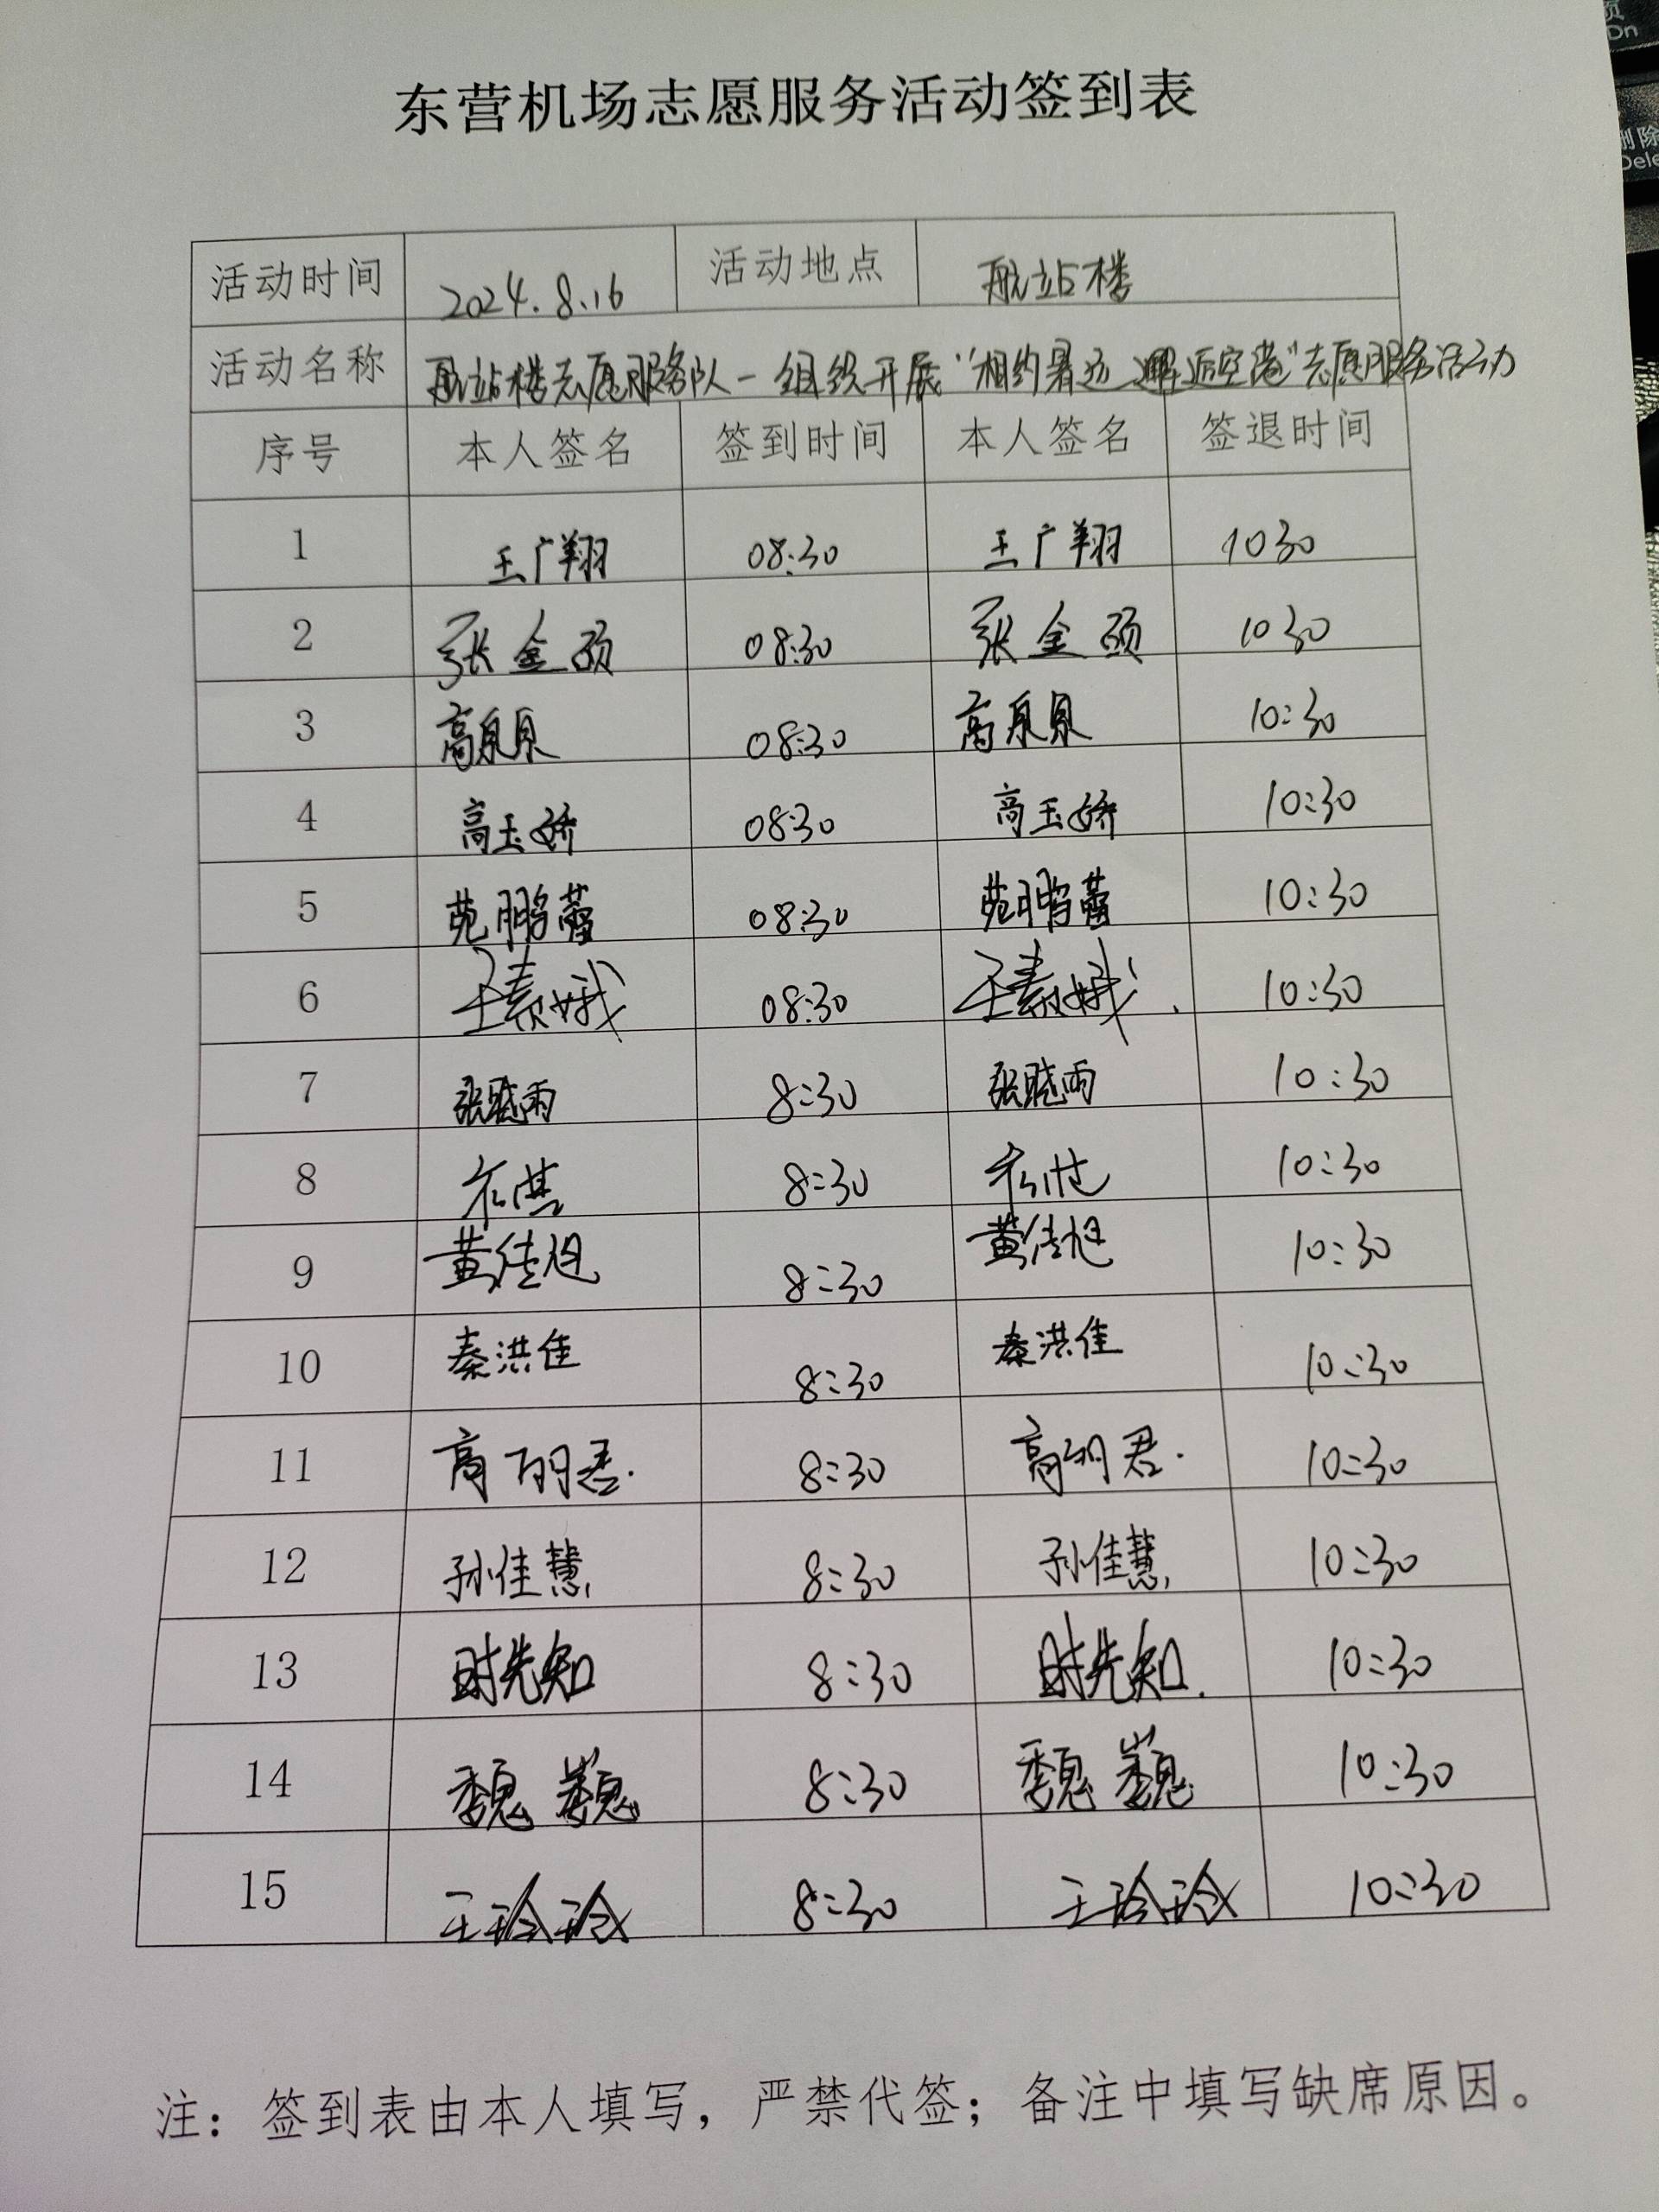 页
Dn
删除
Dele
东营机场志愿服务活动签到表
活动时间 2024.8.16 活动地点 航站楼
活动名称 航站楼志愿服务队一组织开展“相约暑运 邂逅空港”志愿服务活动
序号 本人签名 签到时间 本人签名 签退时间
1 王广翔 08:30 王广翔 1030
2 张金硕 08:30 张金硕 1030
3 高泉泉 08:30 高泉泉 10:30
4 高玉娇 08:30 高玉娇 10:30
5 苑鹏蕾 08:30 苑鹏蕾 10:30
6 王素娥 08:30 王素娥 10:30
7 张晓雨 8:30 张晓雨 10:30
8 8:30 10:30
9 黄佳旭 8:30 黄佳旭 10:30
10 秦洪佳 8:30 秦洪佳 10:30
11 高丽君. 8:30 高丽君. 10:30
12 孙佳慧 8:30 孙佳慧 10:30
13 时先知 8:30 时先知. 10:30
14 魏巍 8:30 魏巍 10:30
15 王玲玲 8:30 王玲玲 10:30
注：签到表由本人填写，严禁代签；备注中填写缺席原因。